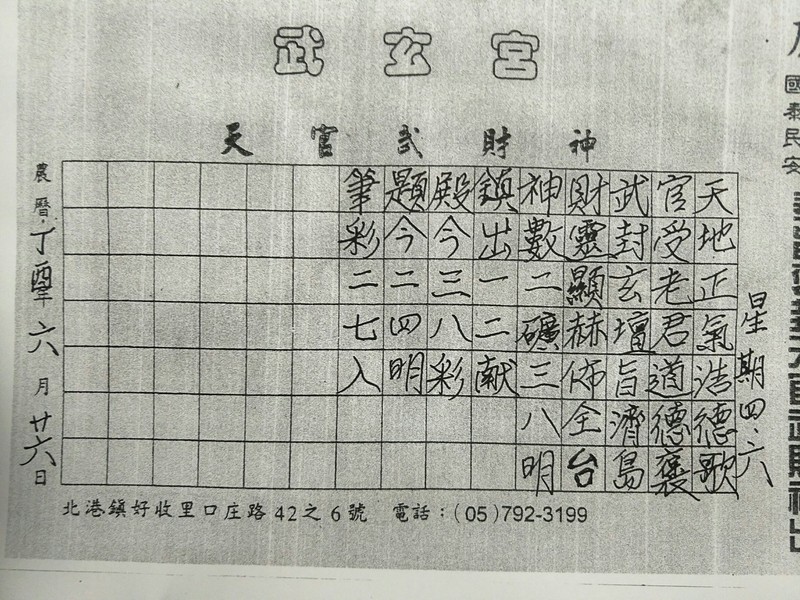 武玄宮
天官武財神
星期四、六
天地正氣浩德歌
官受老君道德褒
武封玄壇旨濟島
財靈顯赫佈全台
神數二礦三八明
鎮出一二献
殿今三八彩
題今二四明
筆彩二七入
農曆丁酉年六月廿六日
北港鎮好收里口庄路42之6號 電話：(05)792-3199
國泰民安
官武財神出